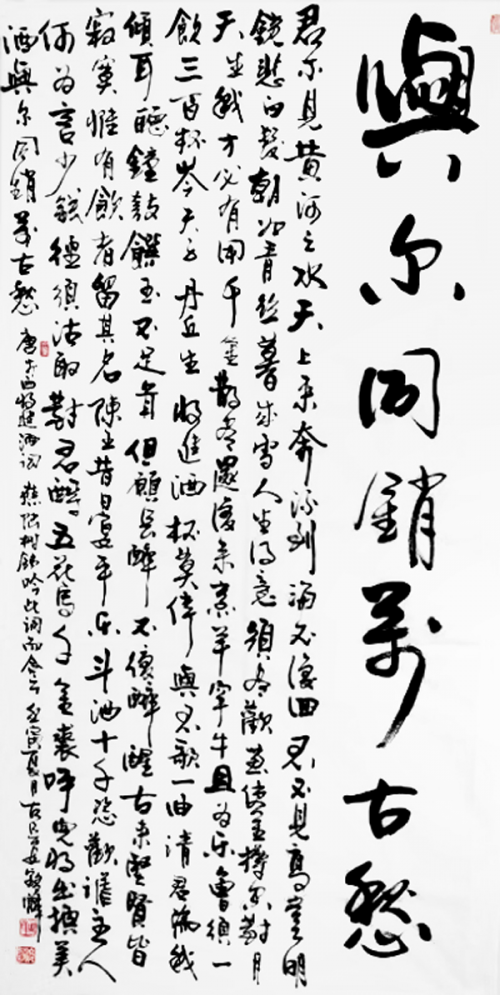 與尔同銷萬古愁
君不見黃河之水天上來奔流到海不復回君不見高堂明
鏡悲白髮朝如青絲暮成雪人生得意須盡歡莫使金樽空對月
天生我才必有用千金散盡還復來烹羊宰牛且為樂會須一
飲三百杯岑夫子丹丘生將進酒杯莫停與君歌一曲請君為我
傾耳聽鐘鼓饌玉不足貴但願長醉不復醒古來聖賢皆
寂寞惟有飲者留其名陳王昔日宴平樂斗酒十千恣歡謔主人
何為言少錢徑須沽取對君酌五花馬千金裘呼兒將出換美
酒與尔同銷萬古愁 唐李白將進酒詞